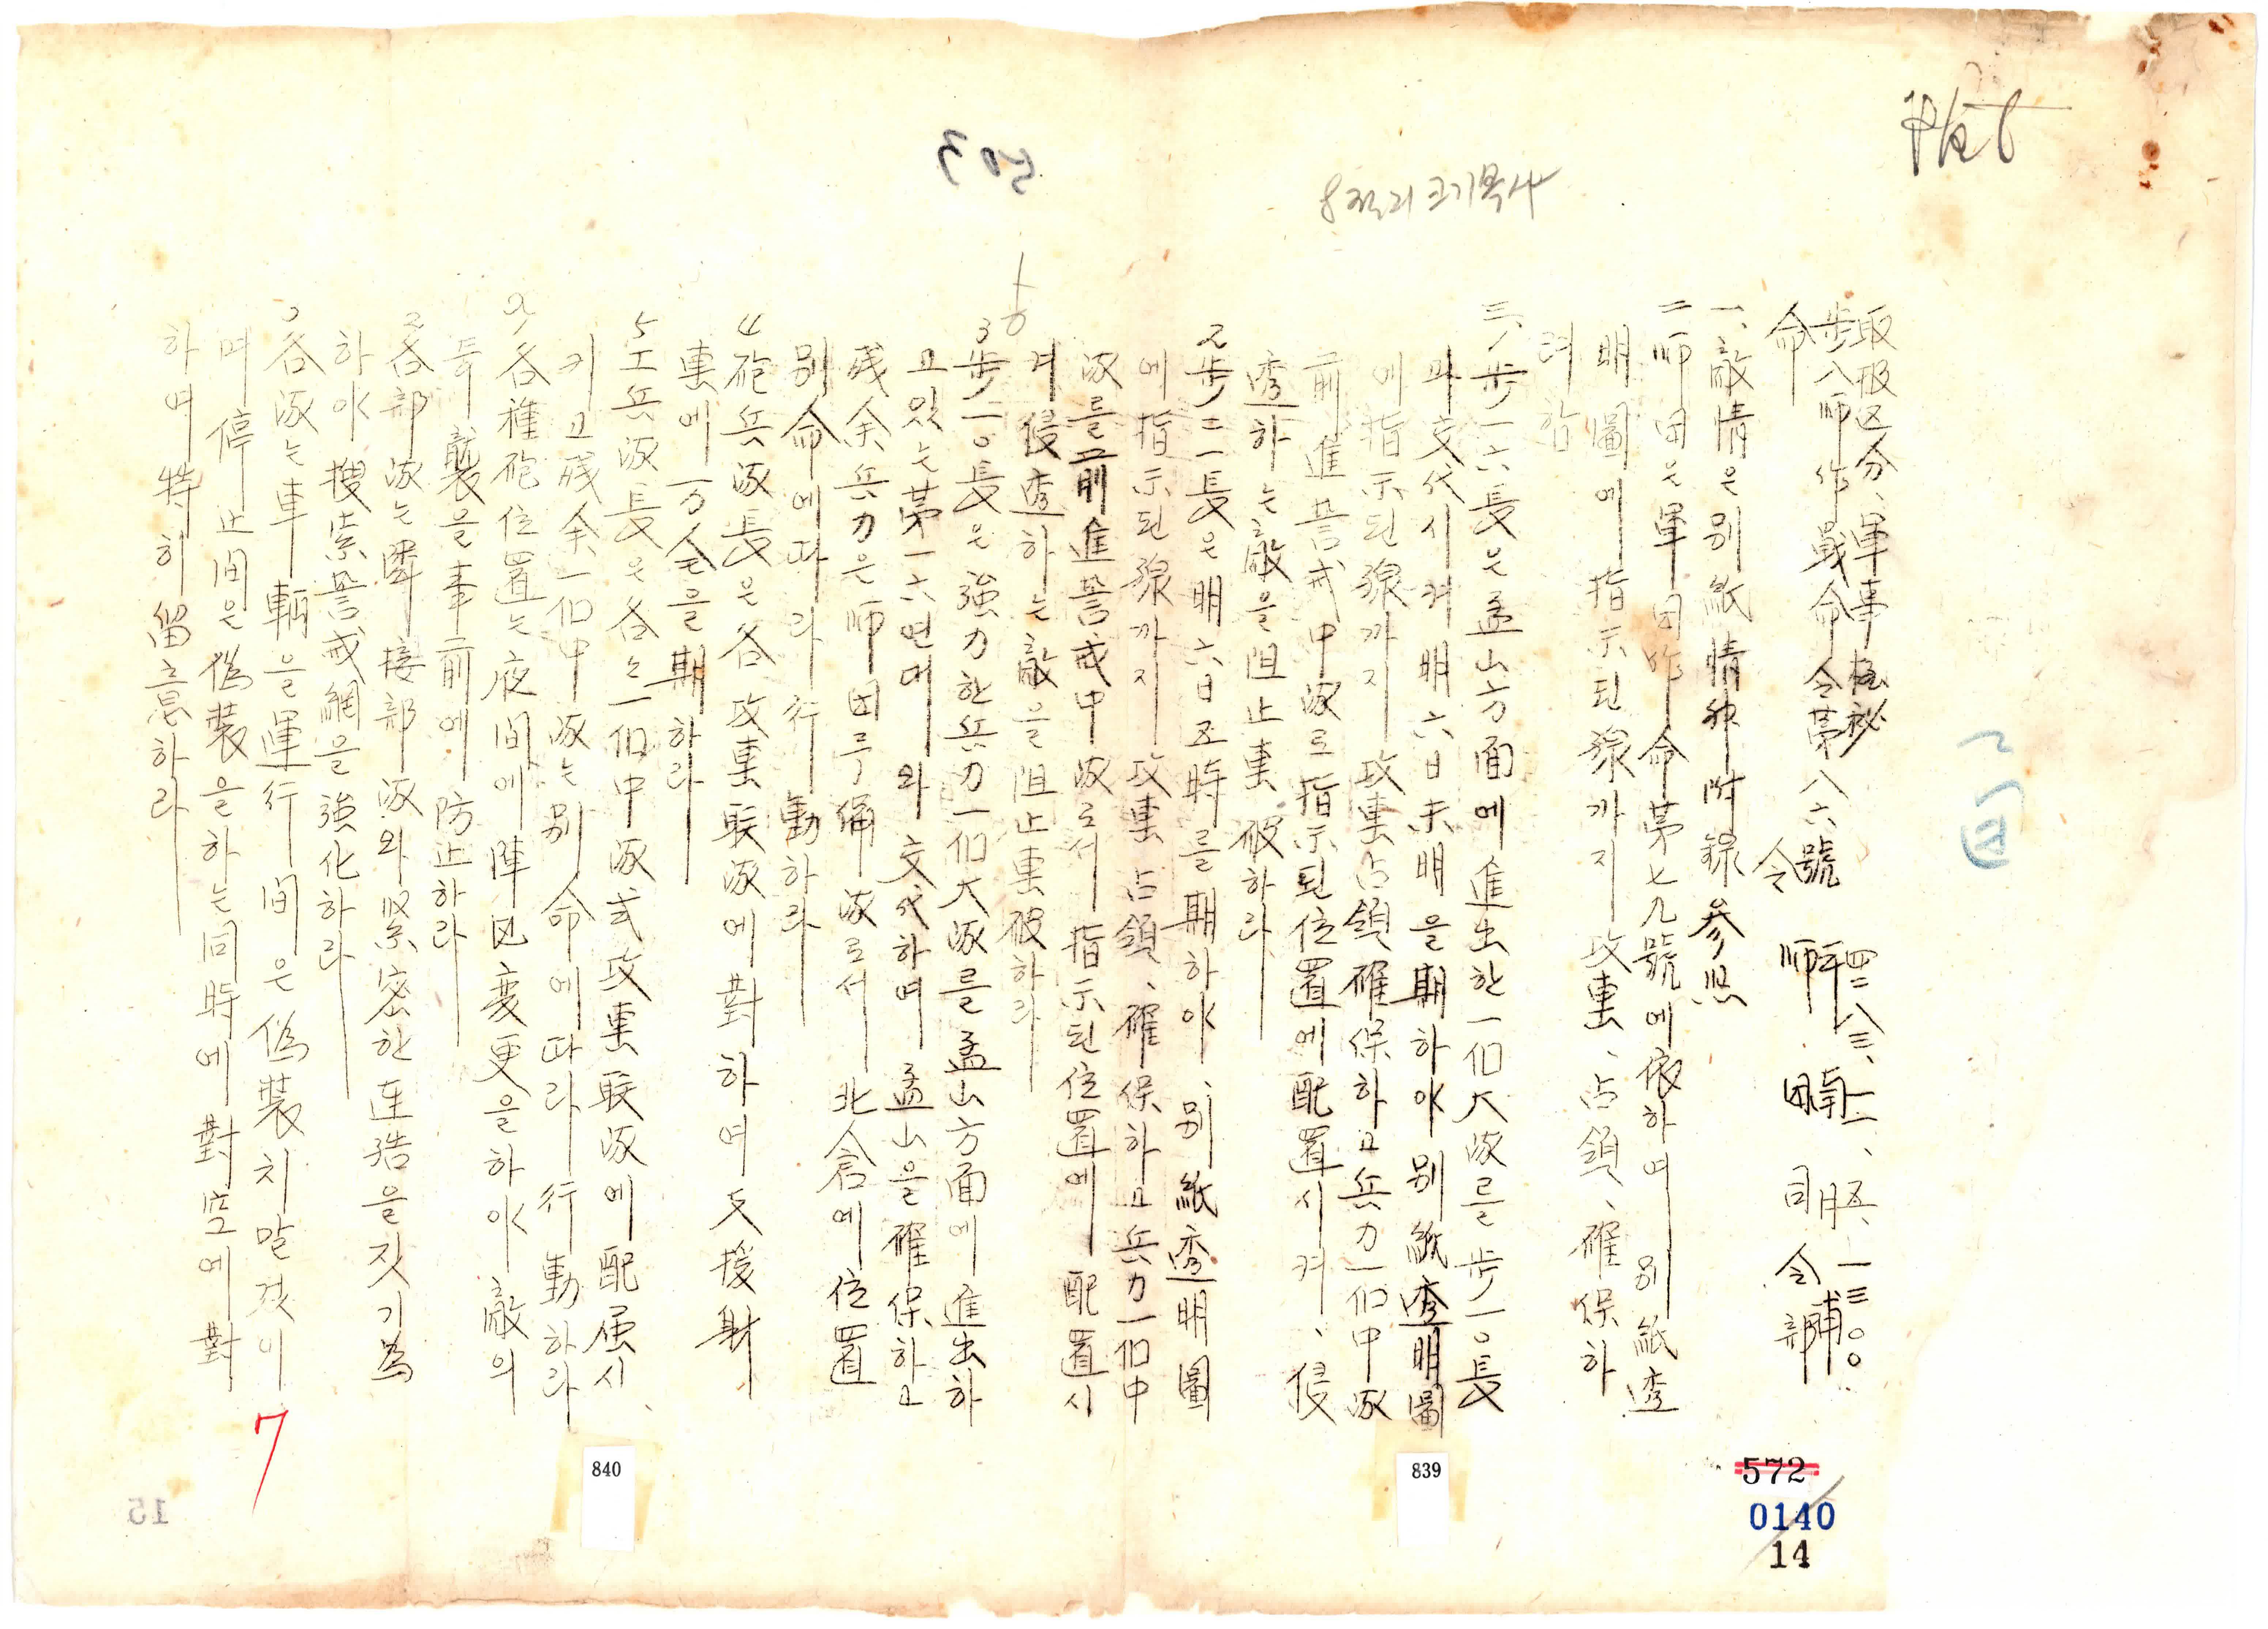 取扱区分、軍事極秘
步八師作戰命令第八六號 四二八三、一一、五、一三三〇
命 令 師團司令部
一、敵情은 別紙情報附錄參照
二 師団은 軍団作命第七九號에 依하며 別紙透
明圖에 指示된 線까지 攻擊、占領、確保하
려함
三、步一六長은 孟山方面에 進出한 一個大隊를 步一〇長
과 交代시켜 明六日未明을 期하야 別紙透明圖
에 指示된 線까지 攻擊占領確保하고 兵力一個中隊
前進警戒中隊로 指示된 位置에 配置시켜、侵
透하는 敵을 阻止擊破하라
2 步二一長은 明六日五時를 期하야、別紙透明圖
에 指示된 線까지 攻擊占領、確保하고 兵力一個中
隊를 前進警戒中隊로서 指示된 位置에 配置시
켜 侵透하는 敵을 阻止擊破하라
3 步一〇長은 強力한 兵力一個大隊를 孟山方面에 進出하
고 있는 第一六연대와 交代하며 孟山을 確保하고
残余兵力은 師団予備隊로서 北倉에 位置
別命에 따라 行動하라
4 砲兵隊長은 各攻擊聯隊에 對하여 支援射
擊에 万全을 期하라
5 工兵隊長은 各々一個中隊式 攻擊聯隊에 配属시
키고 残余一個中隊는 別命에 따라 行動하라
各種砲位置는 夜間에 陣地變更을 하야 敵의
奇襲을 事前에 防止하라
2 各部隊는 隣接部隊와 緊密한 連絡을 짓기 爲
하야 搜索警戒網을 強化하라
3 各隊는 車輛을 運行間은 偽裝치 말것이
며 停止間은 偽裝을 하는 同時에 對空에 對
하여 特히 留意하라
503
839
840
572
0140
14
15
7